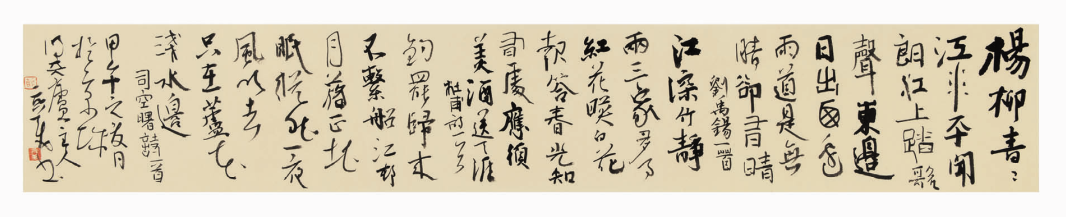 楊柳青〻
江水平聞
郎江上踏歌
聲東邊
日出西邊
雨道是無
晴卻有晴
劉禹錫一首
江深竹靜
兩三家多事
紅花暎白花
報答春光知
有處應須
美酒送生涯
杜甫詩一首
釣罷歸來
不繫船江村
月落正堪
眠縱然一夜
風吹去
只在蘆花
淺水邊
司空曙詩一首
甲午之後月
於京
廬主人